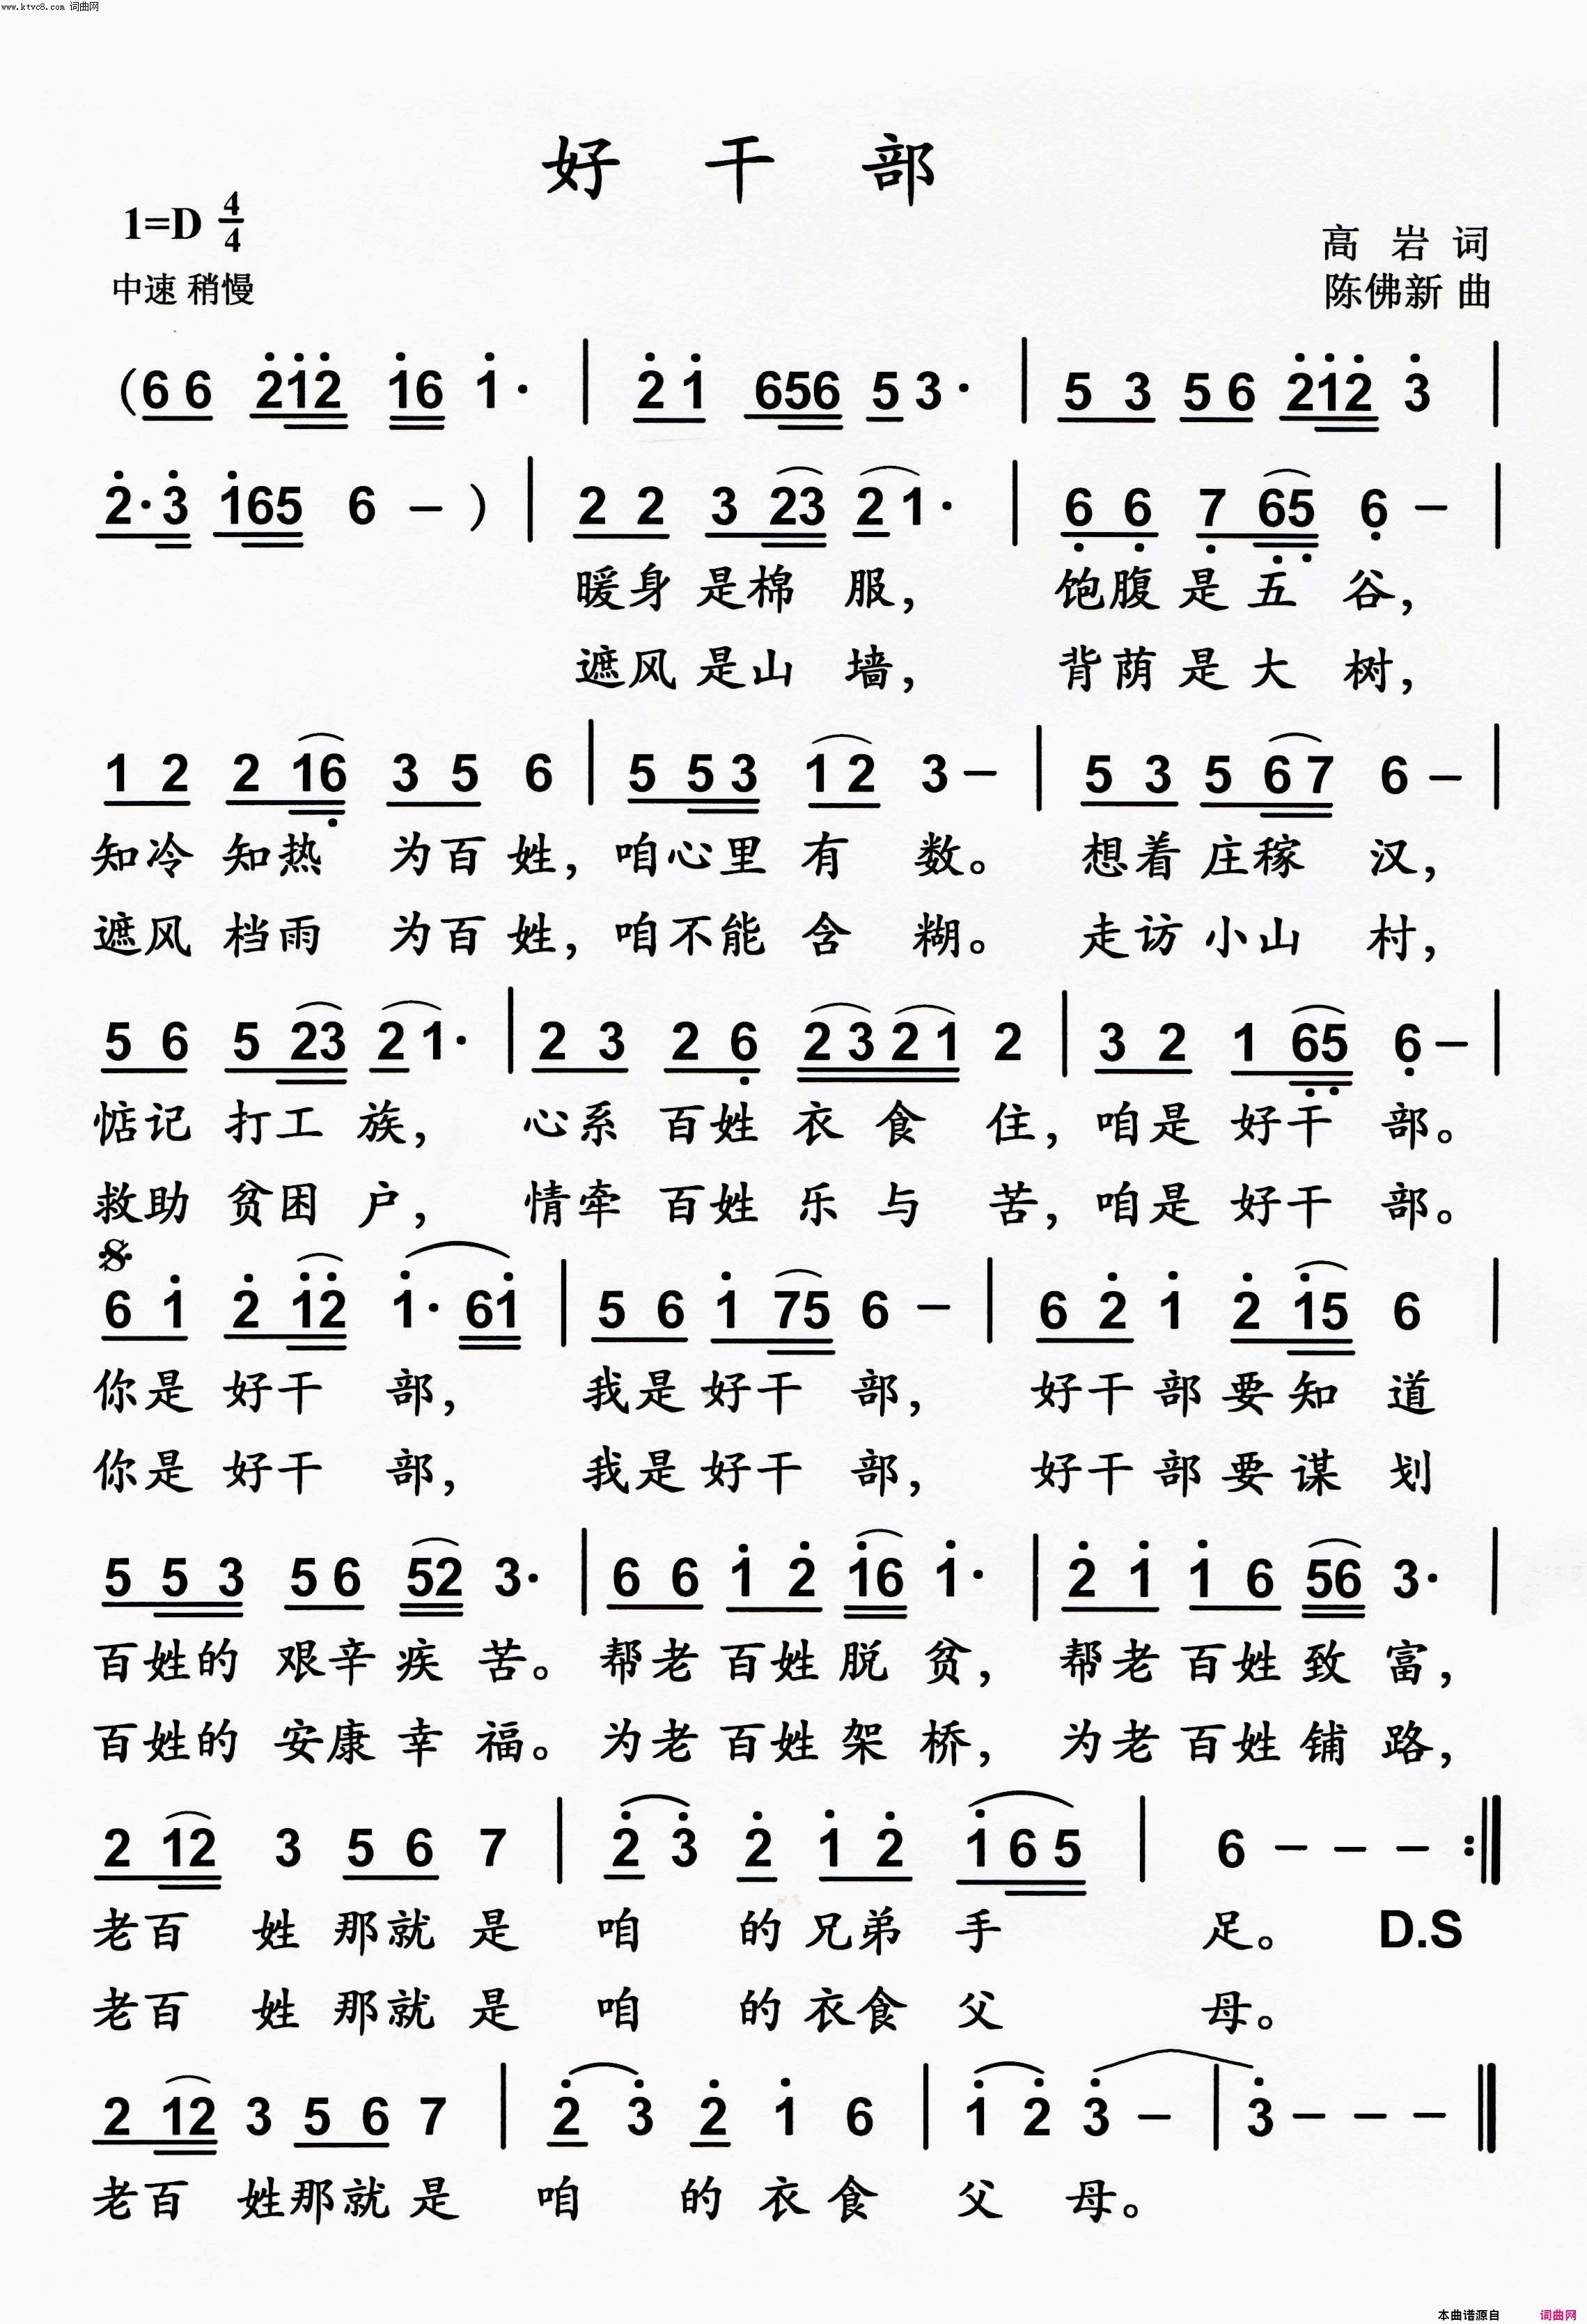 www.ktvc8.com 词曲网
好 干 部
1=D 4/4
高 岩 词
中速 稍慢
陈佛新 曲
(6 6 2̇1̇2̇ 1̇6 1̇· | 2̇ 1̇ 656 5 3· | 5 3 5 6 2̇1̇2̇ 3̇ |
2̇·3̇ 1̇65 6 – ) | 2 2 3 23 2 1· | 6̣ 6̣ 7̣ 6̣5̣ 6̣ – |
暖身 是棉 服， 饱腹 是 五 谷，
遮风 是山 墙， 背荫 是 大 树，
1 2 2 16̣ 3 5 6 | 5 5 3 1 2 3 – | 5 3 5 6 7 6 – |
知冷 知热 为百 姓，咱心里 有 数。 想着 庄稼 汉，
遮风 档雨 为百 姓，咱不能 含 糊。 走访 小山 村，
5 6 5 23 2 1· | 2 3 2 6̣ 2 3 2 1 2 | 3 2 1 6̣5̣ 6̣ – |
惦记 打工 族， 心系 百姓 衣 食 住，咱是 好干 部。
救助 贫困 户， 情牵 百姓 乐 与 苦，咱是 好干 部。
6 1̇ 2̇ 1̇2̇ 1̇· 61̇ | 5 6 1̇ 75 6 – | 6 2̇ 1̇ 2̇ 1̇5 6 |
你是 好干 部， 我是 好干 部， 好干 部 要 知 道
你是 好干 部， 我是 好干 部， 好干 部 要 谋 划
5 5 3 5 6 52 3· | 6 6 1̇ 2̇ 1̇6 1̇· | 2̇ 1̇ 1̇ 6 56 3· |
百姓的 艰辛 疾 苦。帮老 百姓 脱 贫， 帮老 百姓 致 富，
百姓的 安康 幸 福。为老 百姓 架 桥， 为老 百姓 铺 路，
2 12 3 5 6 7 | 2̇ 3̇ 2̇ 1̇ 2̇ 1̇ 6 5 | 6 – – – :‖
老百 姓 那就 是 咱 的 兄弟 手 足。 D.S
老百 姓 那就 是 咱 的 衣食 父 母。
2 12 3 5 6 7 | 2̇ 3̇ 2̇ 1̇ 6 | 1̇ 2̇ 3̇ – | 3̇ – – – ‖
老百 姓那就 是 咱 的 衣 食 父 母。
本曲谱源自 词曲网